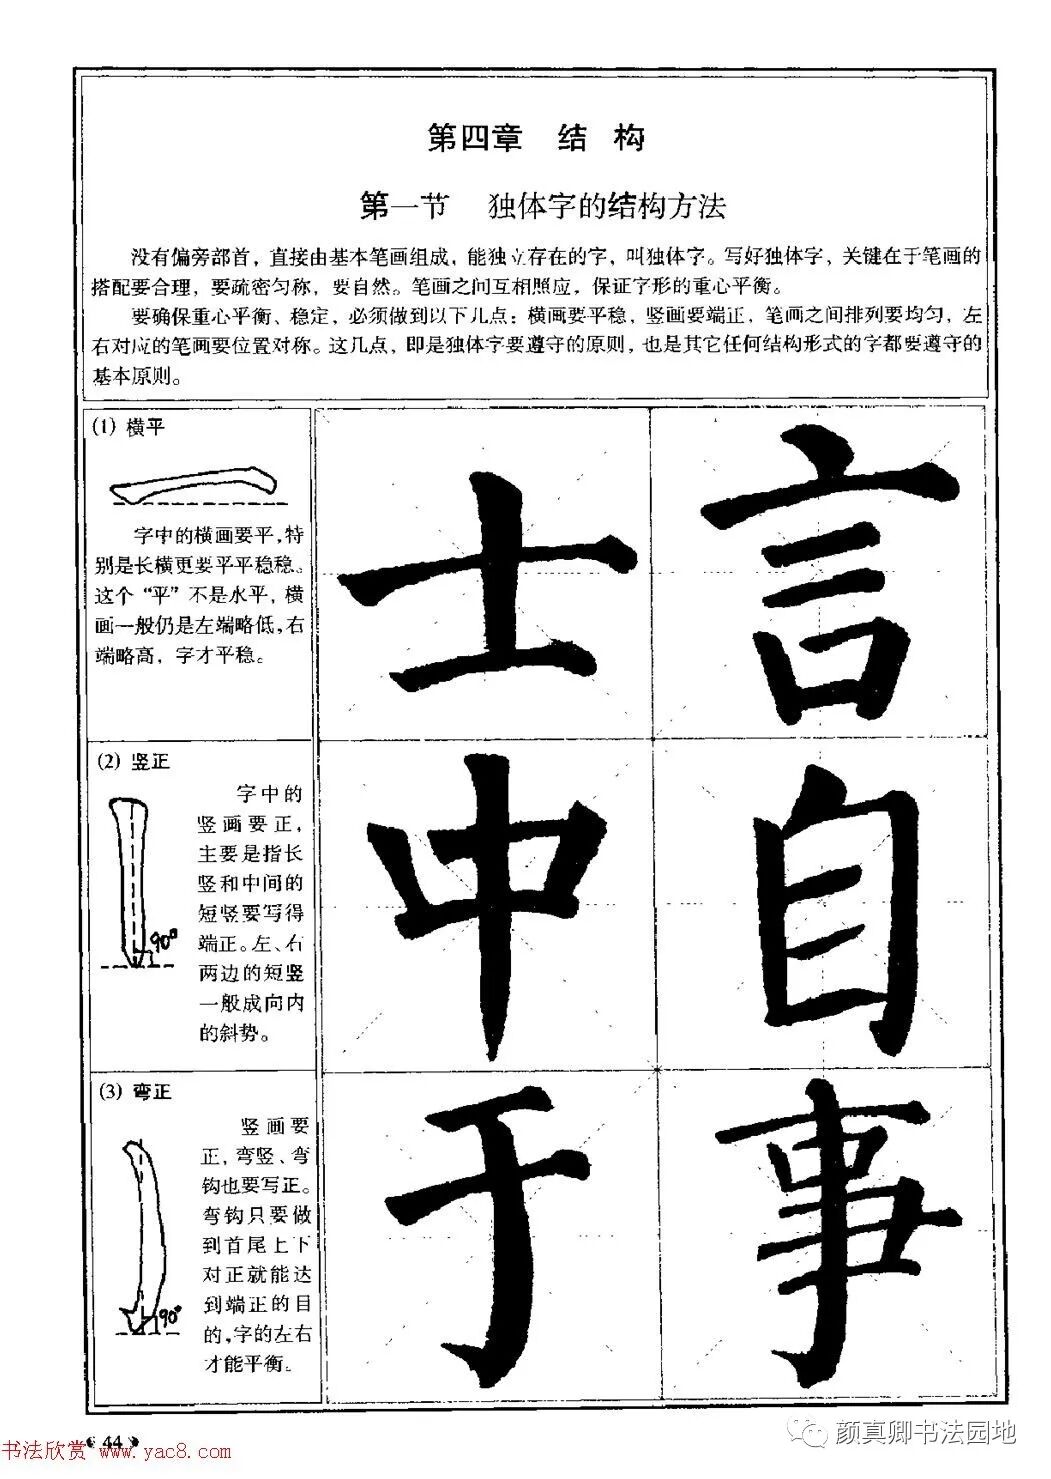 第四章 结 构
第一节 独体字的结构方法
没有偏旁部首，直接由基本笔画组成，能独立存在的字，叫独体字。写好独体字，关键在于笔画的
搭配要合理，要疏密匀称，要自然。笔画之间互相照应，保证字形的重心平衡。
要确保重心平衡、稳定，必须做到以下几点：横画要平稳，竖画要端正，笔画之间排列要均匀，左
右对应的笔画要位置对称。这几点，即是独体字要遵守的原则，也是其它任何结构形式的字都要遵守的
基本原则。
(1) 横平
字中的横画要平，特
别是长横更要平平稳稳。
这个“平”不是水平，横
画一般仍是左端略低，右
端略高，字才平稳。
士 言
(2) 竖正
字中的
竖画要正，
主要是指长
竖和中间的
短竖要写得
端正。左、右
两边的短竖
一般成向内
的斜势。
90°
中 自
(3) 弯正
竖画要
正，弯竖、弯
钩也要写正。
弯钩只要做
到首尾上下
对正就能达
到端正的目
的，字的左右
才能平衡。
90°
于 事
44
书法欣赏 www.yac8.com
颜真卿书法园地